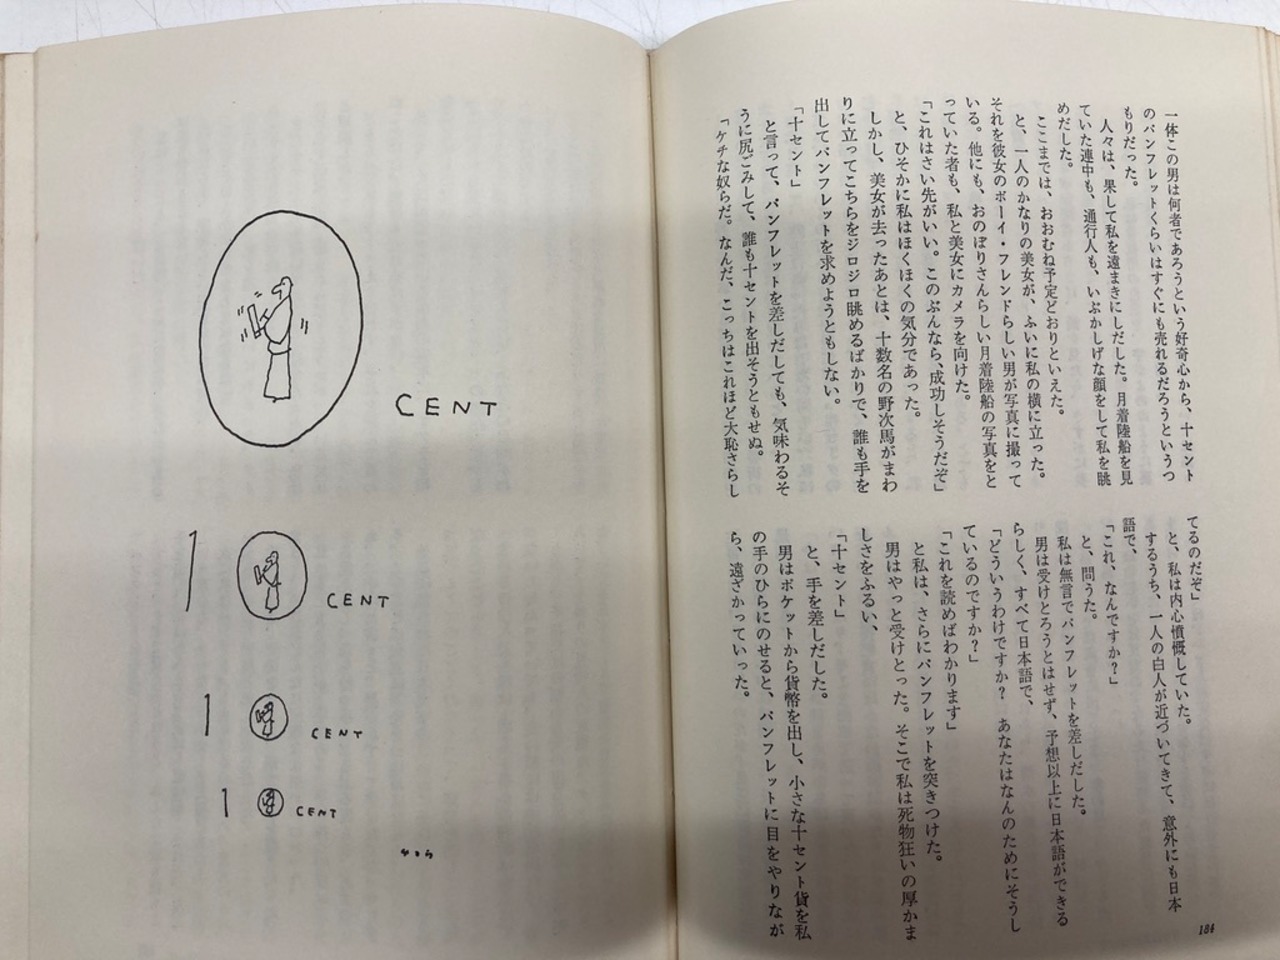 一体この男は何者であろうという好奇心から、十セント
のパンフレットくらいはすぐにも売れるだろうというつ
もりだった。
人々は、果して私を遠まきにしだした。月着陸船を見
ていた連中も、通行人も、いぶかしげな顔をして私を眺
めだした。
ここまでは、おおむね予定どおりといえた。
と、一人のかなりの美女が、ふいに私の横に立った。
それを彼女のボーイ・フレンドらしい男が写真に撮って
いる。他にも、おのぼりさんらしい月着陸船の写真をと
っていた者も、私と美女にカメラを向けた。
「これはさい先がいい。このぶんなら、成功しそうだぞ」
と、ひそかに私はほくほくの気分であった。
しかし、美女が去ったあとは、十数名の野次馬がまわ
りに立ってこちらをジロジロ眺めるばかりで、誰も手を
出してパンフレットを求めようともしない。
「十セント」
と言って、パンフレットを差しだしても、気味わるそ
うに尻ごみして、誰も十セントを出そうともせぬ。
「ケチな奴らだ。なんだ、こっちはこれほど大恥さらし
てるのだぞ」
と、私は内心憤慨していた。
するうち、一人の白人が近づいてきて、意外にも日本
語で、
「これ、なんですか？」
と、問うた。
私は無言でパンフレットを差しだした。
男は受けとろうとはせず、予想以上に日本語ができる
らしく、すべて日本語で、
「どういうわけですか？　あなたはなんのためにそうし
ているのですか？」
「これを読めばわかります」
と私は、さらにパンフレットを突きつけた。
男はやっと受けとった。そこで私は死物狂いの厚かま
しさをふるい、
「十セント」
と、手を差しだした。
男はポケットから貨幣を出し、小さな十セント貨を私
の手のひらにのせると、パンフレットに目をやりなが
ら、遠ざかっていった。
184
CENT
1 CENT
1 CENT
1 CENT